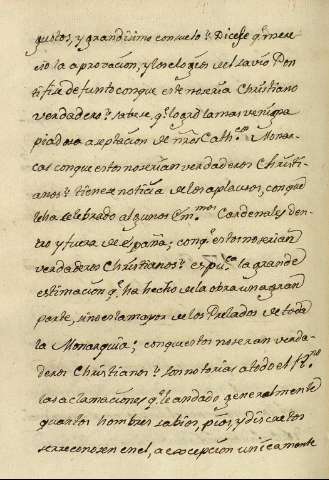 gustos, y grandissimo consuelo? Dicese q̃ mere
cio la aprovacion, y los elogios del sabio Pon
tifice defunto conque este no seria Christiano
verdadero? sabese, q̃ logró la mas benigna
piadosa aceptacion de nr̃os Cath.cos Monar-
cas conque estos no serian verdaderos Christi-
anos? tienese noticia de los aplausos, conque
le ha celebrado algunos Em.mos Cardenales den-
tro y fuera de España; conq̃ estos no serian
verdaderos Christianos? es pu.ca la grande
estimacion q̃ ha hecho de la obra una gran
parte, sino es la mayor de los Prelados de toda
la Monarquia; conque estos no seran verda-
deros Christianos? son notorias a todo el
las aclamaciones, q̃ le an dado generalmente
quantos hombres sabios, pios, y discretos
se reconocen en el, a excepcion unicamente